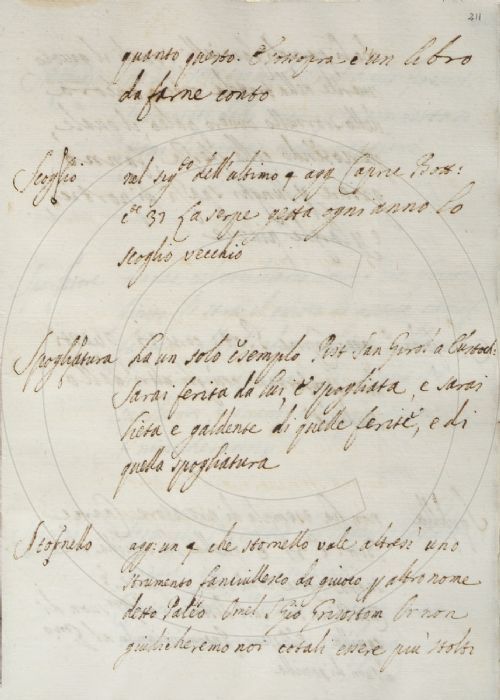 211
quanto questo. E' insopra è un libro
da farne conto
Scoglio nel sig.to dell'ultimo q agg. Carne Bott:
c.te 37 La serpe getta ogni anno lo
scoglio vecchio
Spogliatura ha un solo esempio Pist San Girol. a Eustoch:
Sarai ferita da lui, e spogliata, e sarai
lieta e galdente di quelle ferite, e di
quella spogliatura
Stornello agg: un q che stornello vale altresì uno
strumento fanciullesco da giuoco p altro nome
detto Paléo Grisostom Or non
giudicheremo noi cotali essere più stolti